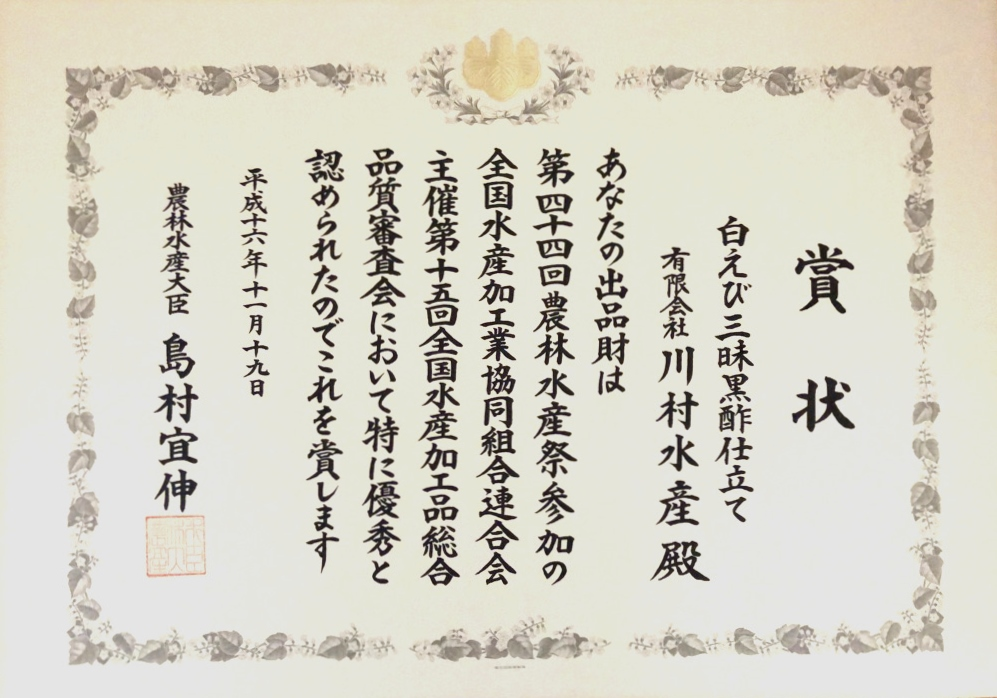 賞状
白えび三昧黒酢仕立て
有限会社 川村水産殿
あなたの出品財は
第四十四回農林水産祭参加の
全国水産加工業協同組合連合会
主催第十五回全国水産加工品総合
品質審査会において特に優秀と
認められたのでこれを賞します
平成十六年十一月十九日
農林水産大臣 島村宜伸